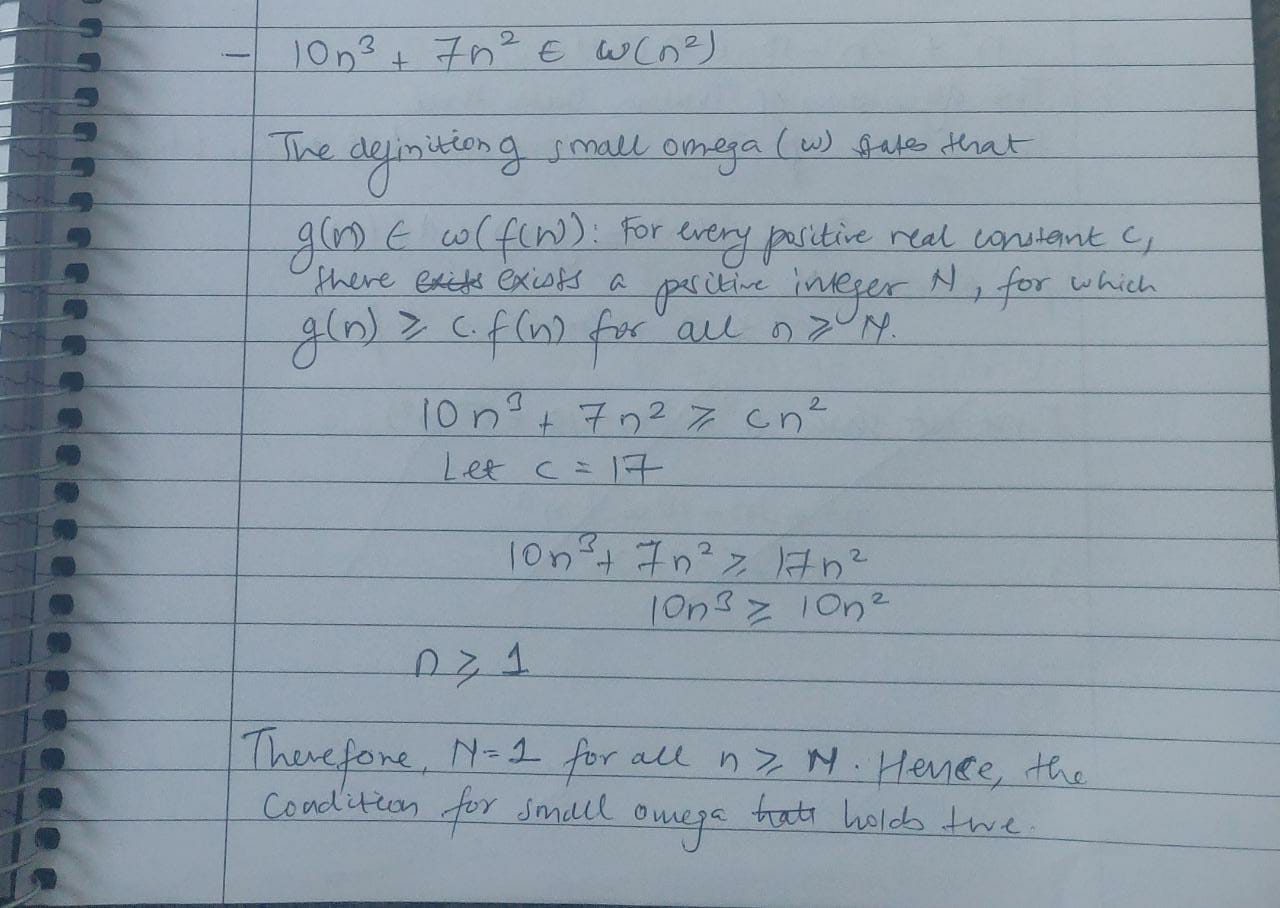 - 10n³ + 7n² ∈ ω(n²)
The definition of small omega (ω) states that
g(n) ∈ ω(f(n)): For every positive real constant c,
there exists exists a positive integer N, for which
g(n) ≥ c.f(n) for all n ≥ N.
10n³ + 7n² ≥ cn²
Let c = 17
10n³ + 7n² ≥ 17n²
10n³ ≥ 10n²
n ≥ 1
Therefore, N=1 for all n ≥ N. Hence, the
condition for small omega holds true.